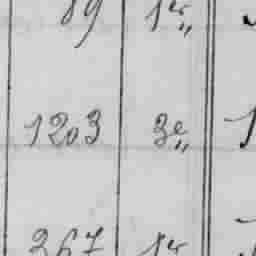 89 1er „
1203 3e „
267 1er